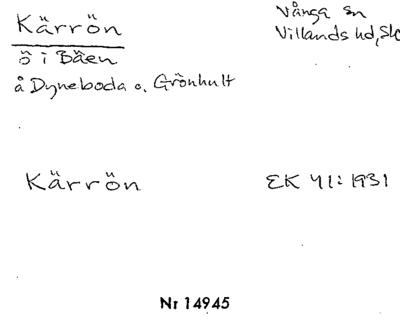 Kärrön
ö i Båen
å Dyneboda o. Grönhult
Vånga sn
Villands hd, Sk
Kärrön
EK 41:1931
Nr 14945